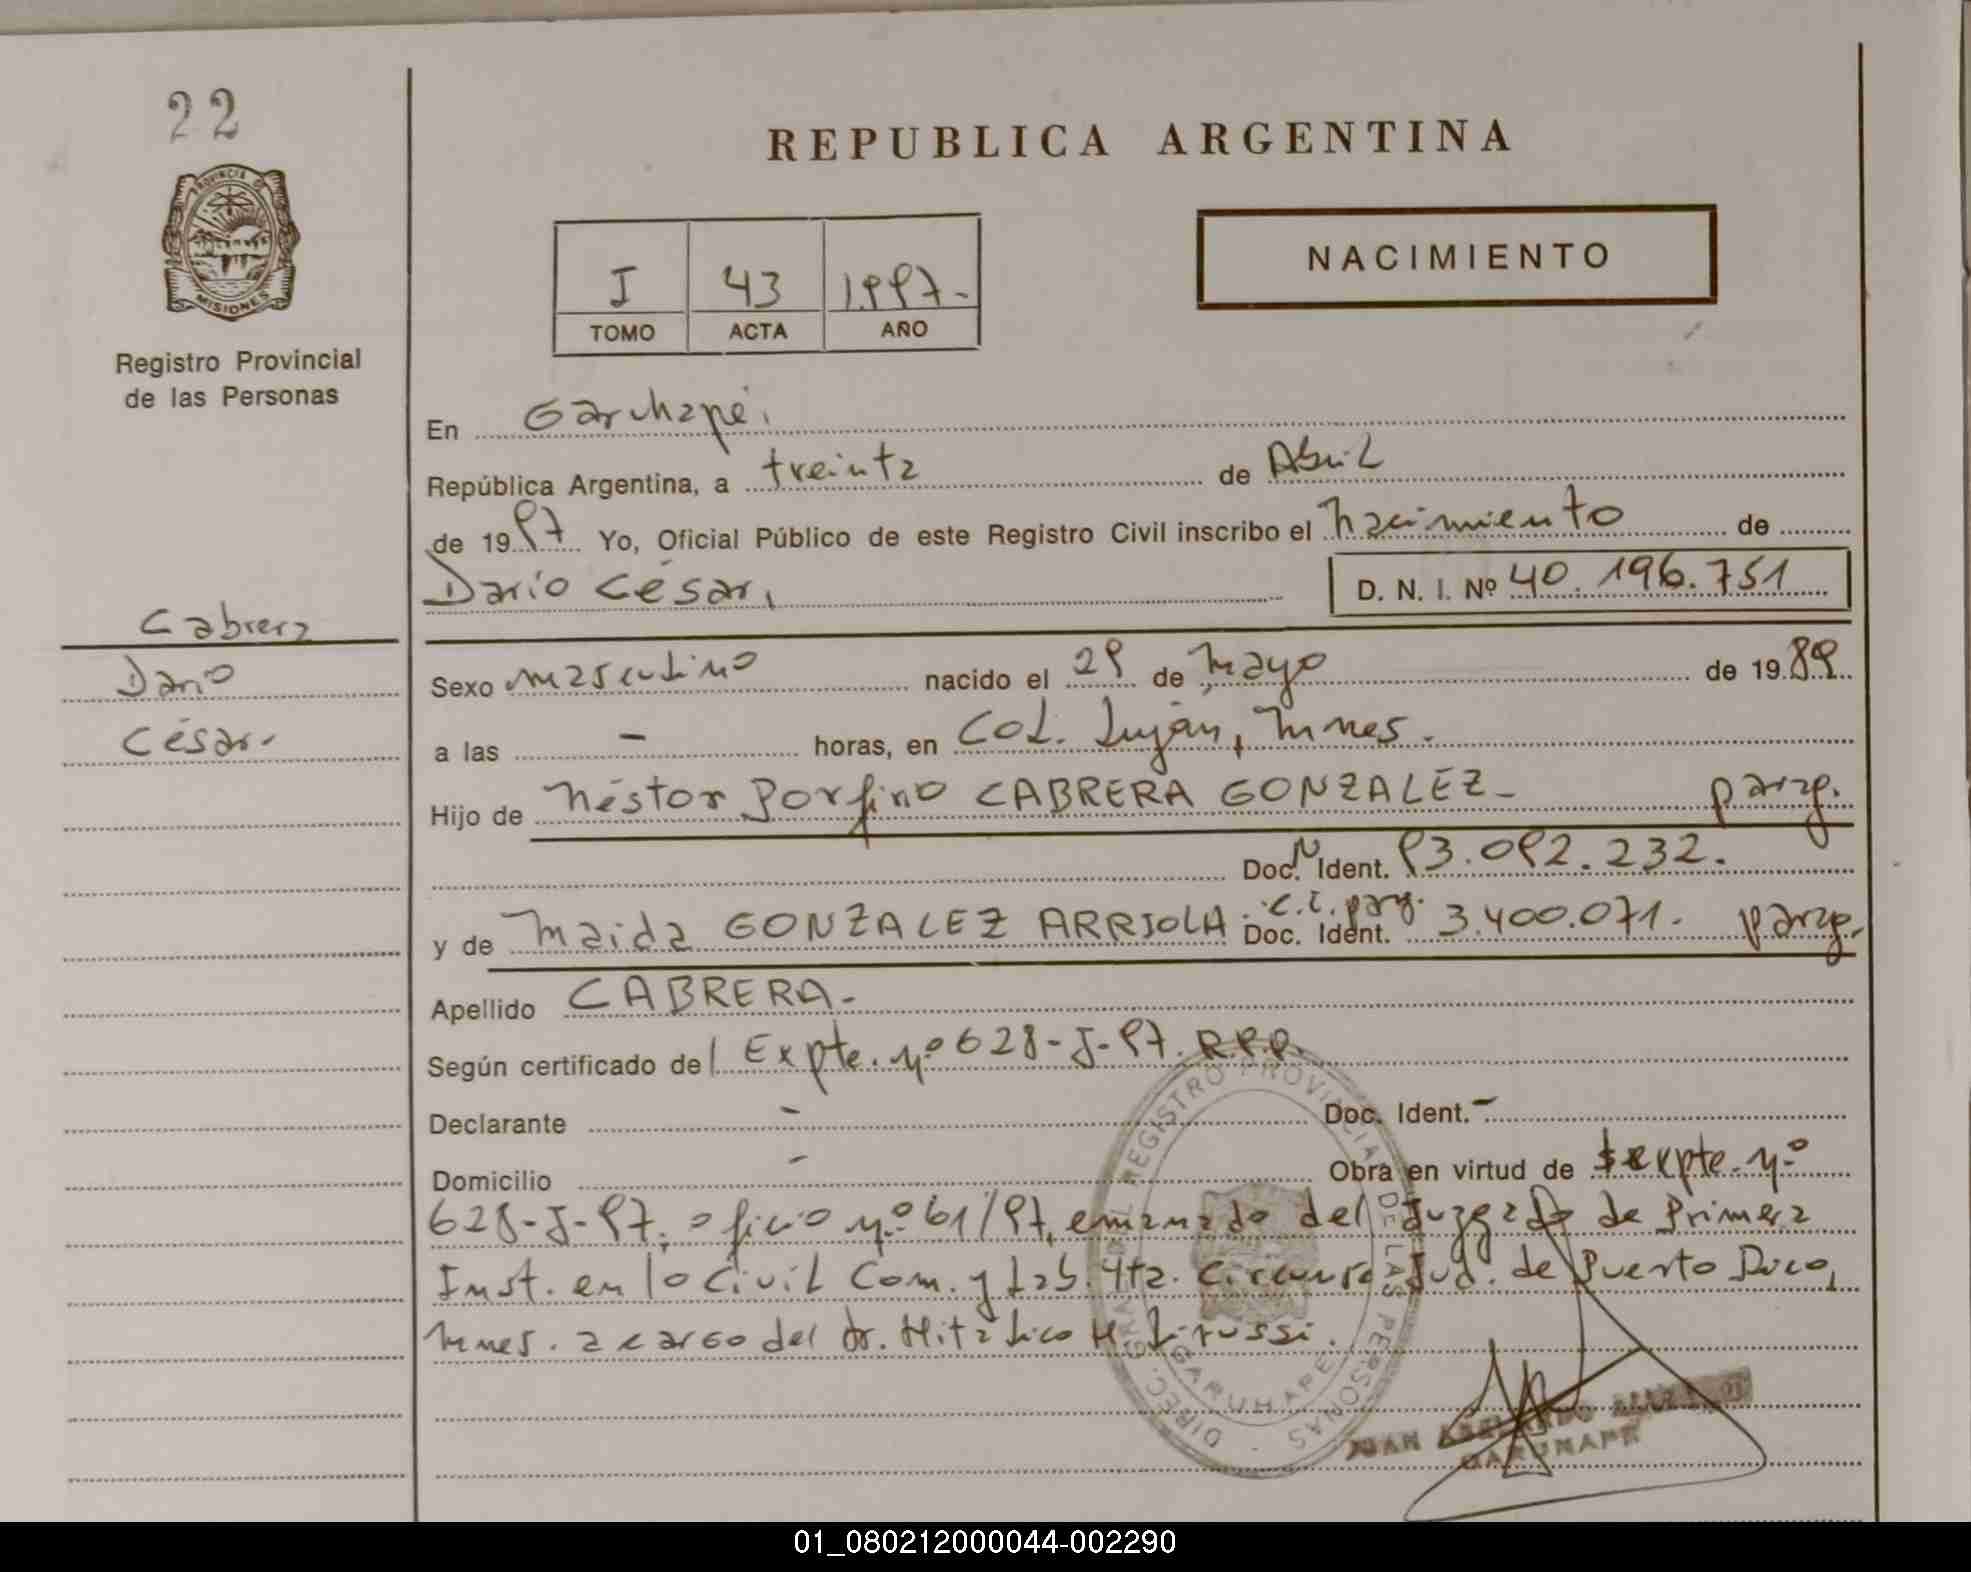 22
PROVINCIA DE
MISIONES
Registro Provincial
de las Personas
REPUBLICA ARGENTINA
NACIMIENTO
I 43 1.997.-
TOMO ACTA AÑO
En Garuhapé.
República Argentina, a treinta de Abril
de 1997 Yo, Oficial Público de este Registro Civil inscribo el nacimiento de
Darío César, D. N. I. Nº 40.196.751
Cabrera
Darío
César.-
Sexo masculino nacido el 29 de mayo de 1989
a las - horas, en Col. Luján, Mnes.
Hijo de Néstor Porfirio CABRERA GONZALEZ - parag.
Doc. N Ident. 93.092.232.
y de Maida GONZALEZ ARRIOLA. Doc. Ident. c.i. pary. 3.400.071. parag.
Apellido CABRERA.-
Según certificado de l Expte. nº 628-J-97. R.P.P.
Declarante - Doc. Ident. -
Domicilio - Obra en virtud de expte. nº
628-J-97, oficio nº 61/97, emanado del Juzgado de Primera
Inst. en lo Civil Com. y Lab. 4ta. Circunsc. Jud. de Puerto Rico,
Mnes. a cargo del dr. H.
DIREC. GRAL. DEL REGISTRO PROVINCIAL DE LAS PERSONAS
GARUHAPE
JUAN ABELARDO
GARUHAPE
01_080212000044-002290